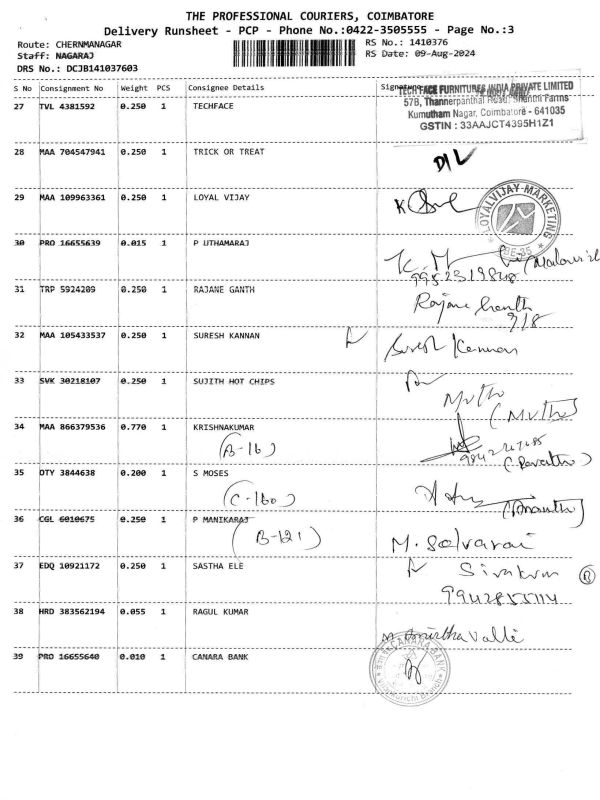 THE PROFESSIONAL COURIERS, COIMBATORE
Delivery Runsheet - PCP - Phone No.:0422-3505555 - Page No.:3
Route: CHERNMANAGAR RS No.: 1410376
Staff: NAGARAJ RS Date: 09-Aug-2024
DRS No.: DCJB141037603
S No Consignment No Weight PCS Consignee Details Signature
27 TVL 4381592 0.250 1 TECHFACE
TECH FACE FURNITURES INDIA PRIVATE LIMITED
57B, Thannerpanthal Road, Shanthi Farms
Kumutham Nagar, Coimbatore - 641035
GSTIN : 33AAJCT4395H1Z1
28 MAA 704547941 0.250 1 TRICK OR TREAT D/L
29 MAA 109963361 0.250 1 LOYAL VIJAY
LOYALVIJAY MARKETING
CBE-35
30 PRO 16655639 0.015 1 P UTHAMARAJ
31 TRP 5924209 0.250 1 RAJANE GANTH Rajane Ganth
9/8
32 MAA 105433537 0.250 1 SURESH KANNAN Suresh Kannan
33 SVK 30218107 0.250 1 SUJITH HOT CHIPS Muthu
(Muthu)
34 MAA 866379536 0.770 1 KRISHNAKUMAR
(A-16)
(Revathi)
35 DTY 3844638 0.200 1 S MOSES
(C-160)
(Ananth)
36 CGL 6010675 0.250 1 P MANIKARAJ
(B-121)
M. Selvaraj
37 EDQ 10921172 0.250 1 SASTHA ELE Sivakum
38 HRD 383562194 0.055 1 RAGUL KUMAR M. Amirthavalli
39 PRO 16655640 0.010 1 CANARA BANK
CANARA BANK